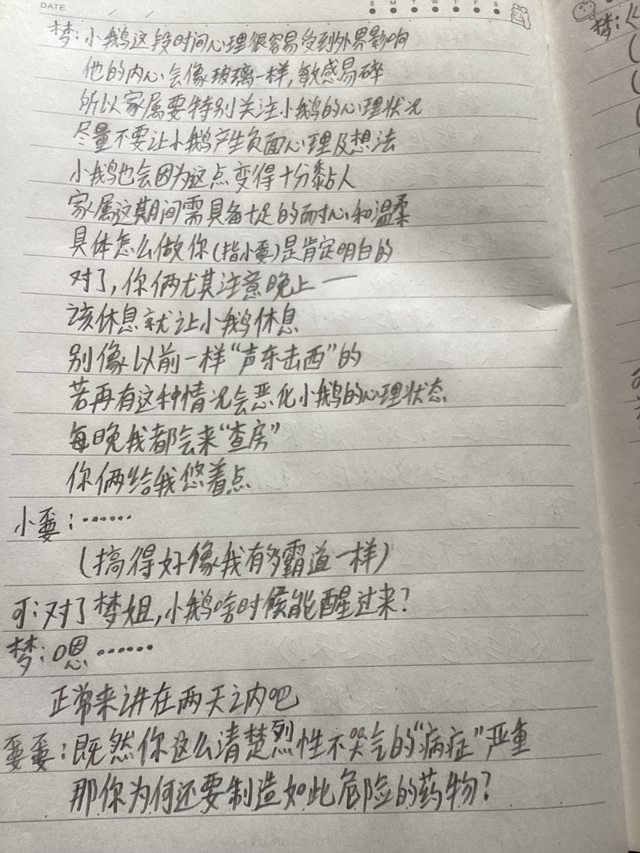 DATE
S M T W T F S
梦:小鹅这段时间心理很容易受到外界影响
他的内心会像玻璃一样,敏感易碎
所以家属要特别关注小鹅的心理状况
尽量不要让小鹅产生负面心理及想法
小鹅也会因为这点变得十分黏人
家属这期间需具备十足的耐心和温柔
具体怎么做你(指小嫑)是肯定明白的
对了,你俩尤其注意晚上一
该休息就让小鹅休息
别像以前一样“声东击西”的
若再有这种情况会恶化小鹅的心理状态
每晚我都会来“查房”
你俩给我悠着点
小嫑:……
(搞得好像我有多霸道一样)
可:对了梦姐,小鹅啥时候能醒过来?
梦:嗯……
正常来讲在两天之内吧
嫑嫑:既然你这么清楚烈性不哭气的“病症”严重
那你为何还要制造如此危险的药物?
梦: